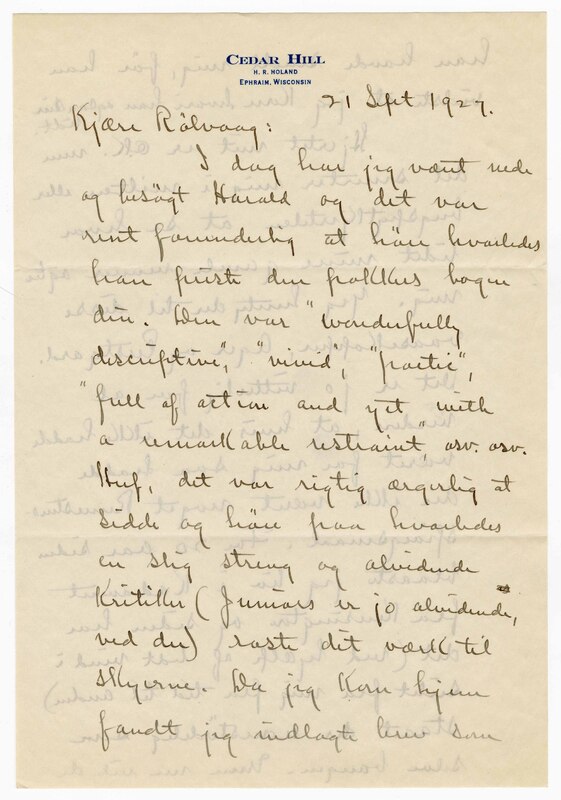 CEDAR HILL
H. R. HOLAND
EPHRAIM, WISCONSIN
21 Sept 1927.
Kjære Rölvaag:
I dag har jeg vært nede
og besögt Harald og det var
rent forunderlig at höre hvorledes
han priste den bogen
din. Den var "wonderfully
discriptive", "vivid", "poetic",
"full of action and yet with
a remarkable restraint", osv. osv.
Huf, det var rigtig ærgerlig at
sidde og höre paa hvorledes
en slig streng og alvidende
Kritiker (Juniors er jo alvidende,
ved du) roste dit værk til
skyerne. Da jeg kom hjem
fandt jeg indlagte brev som